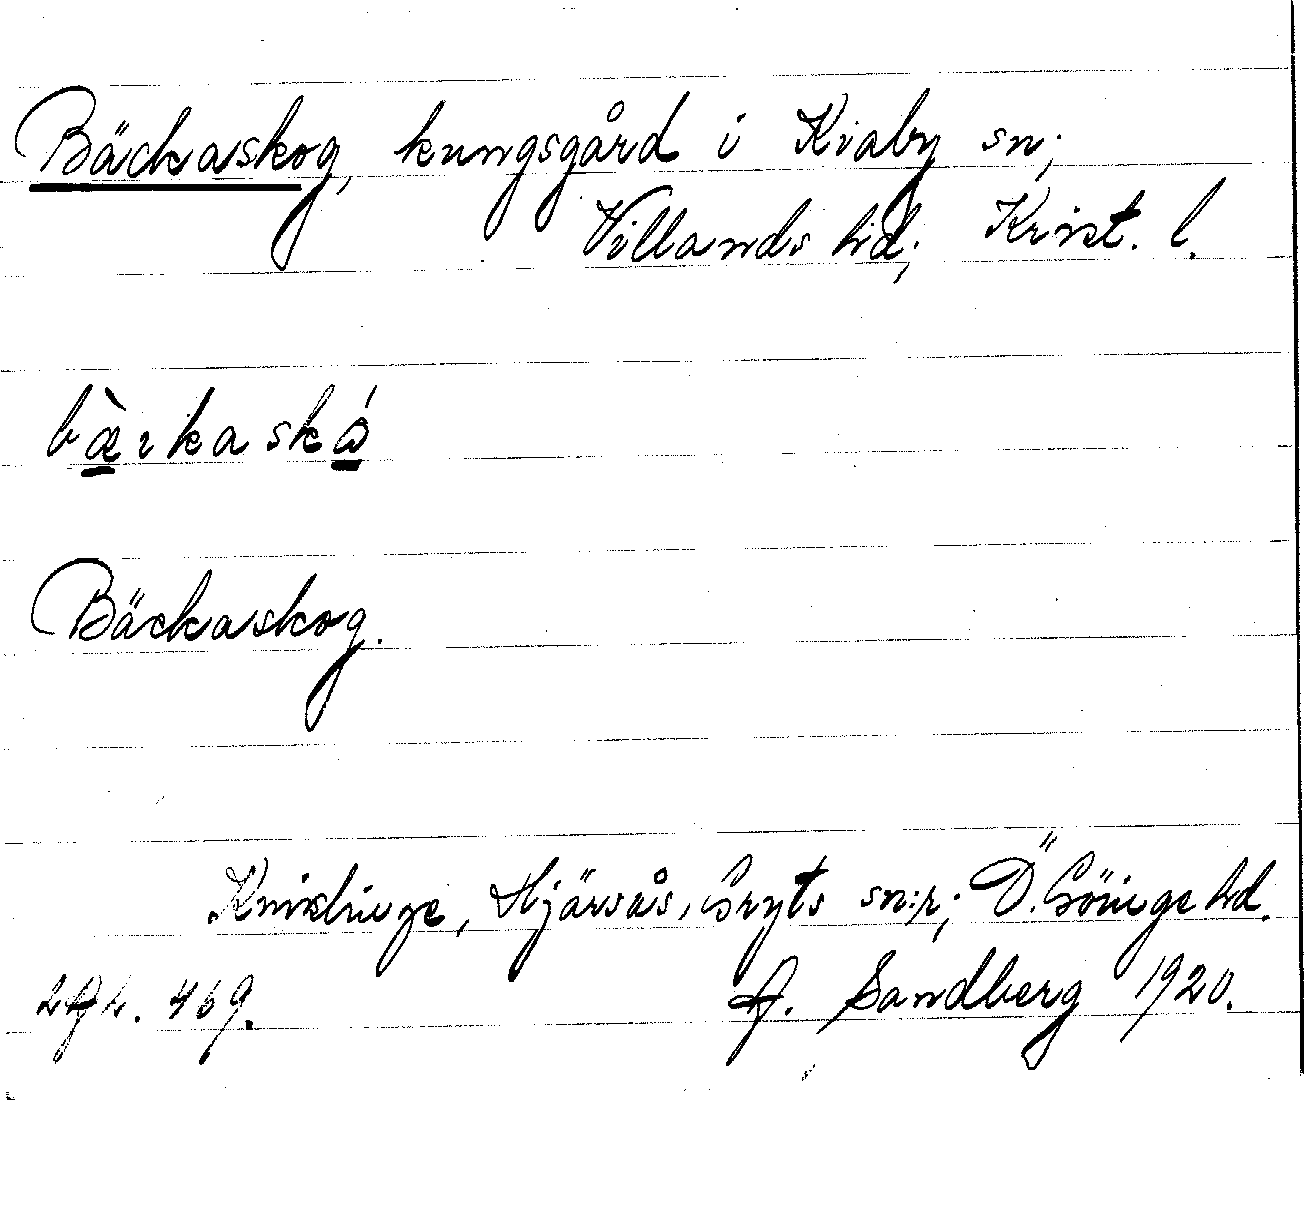 Bäckaskog, kungsgård i Kiaby sn;
Villands hd; Krist. l.
bæ̀rkaskó
Bäckaskog.
Knislinge, Hjärsås, Gryts sn:r; Ö. Göinge hd.
469. A. Sandberg 1920.